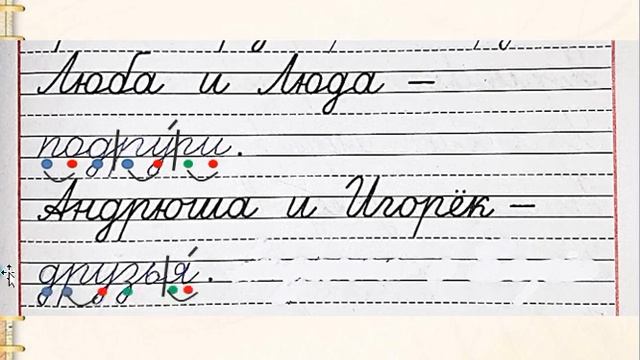 Люба и Люда –
под|ру́|ги.
Андрюша и Игорёк –
друзь|я́.